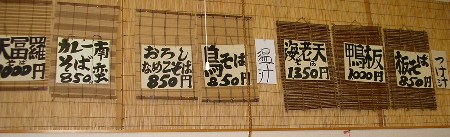 天冨羅
そば
1000円
カレー南蛮
そば
850円
おろし
なめこそば
850円
鳥そば
850円
温汁
海老天
そば
1350円
鴨板
1000円
板そば
850円
つけ汁